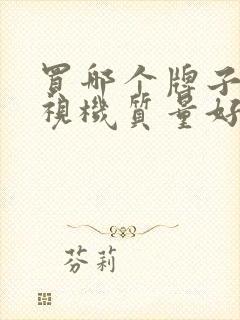 買哪个牌子
視機质量好
芬莉